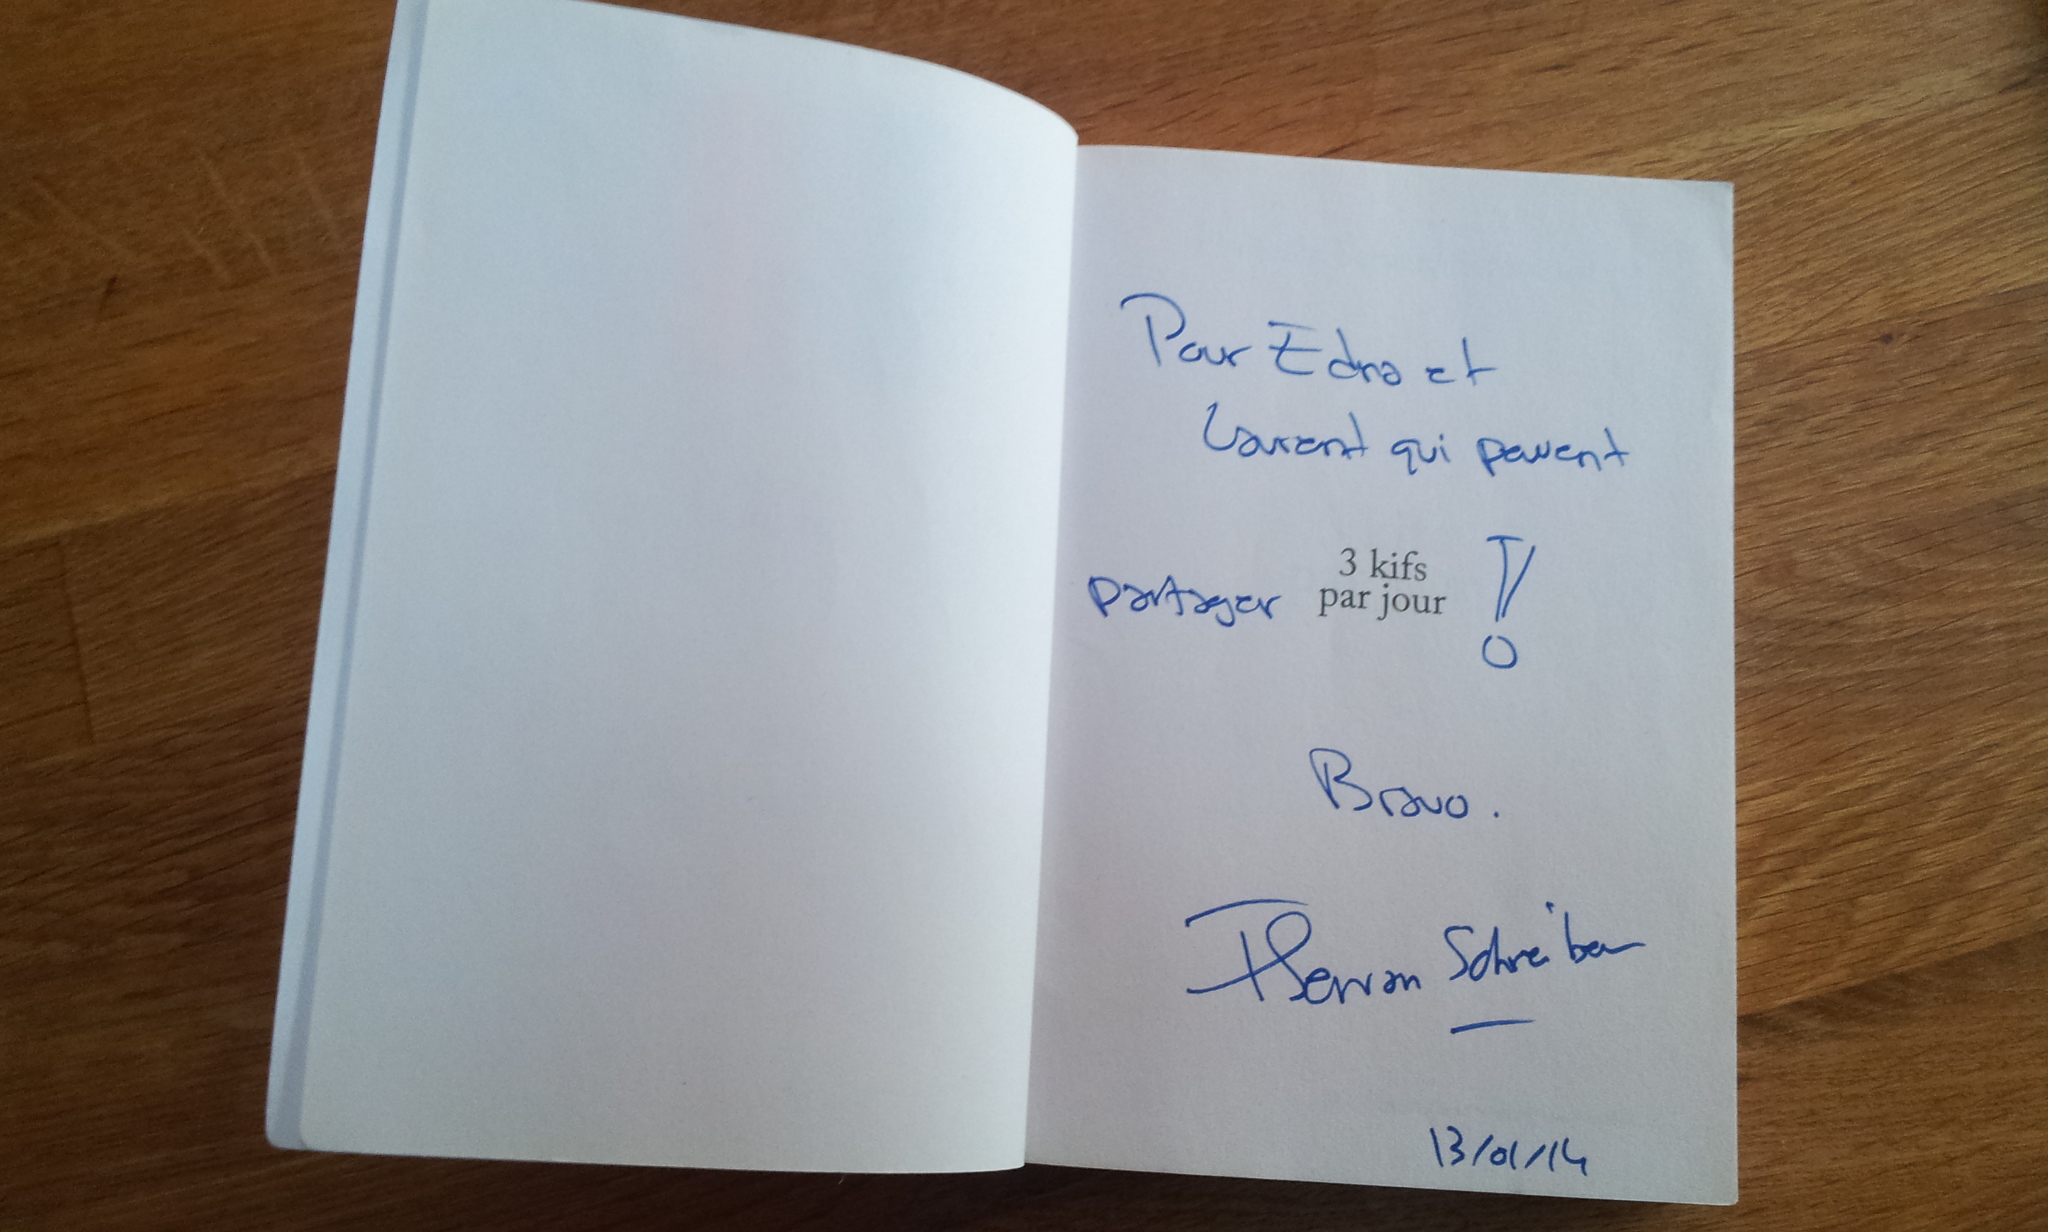 Pour Edna et
Laurent qui peuvent
partager 3 kifs par jour !
Bravo.
Servan Schreiber
13/01/14